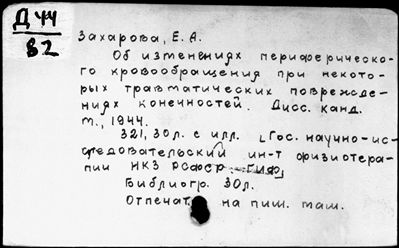 Д 44
82
Захарова, Е. А.
Об изменениях периферическо-
го кровообращения при некото-
рых травматических поврежде-
ниях конечностей. Дисс. канд.
М., 1944.
321, 30 л. с илл. [Гос. научно-ис-
следовательский ин-т физиотера-
пии НКЗ РСФСР
Библиогр. 30 л.
Отпечат. на пиш. маш.